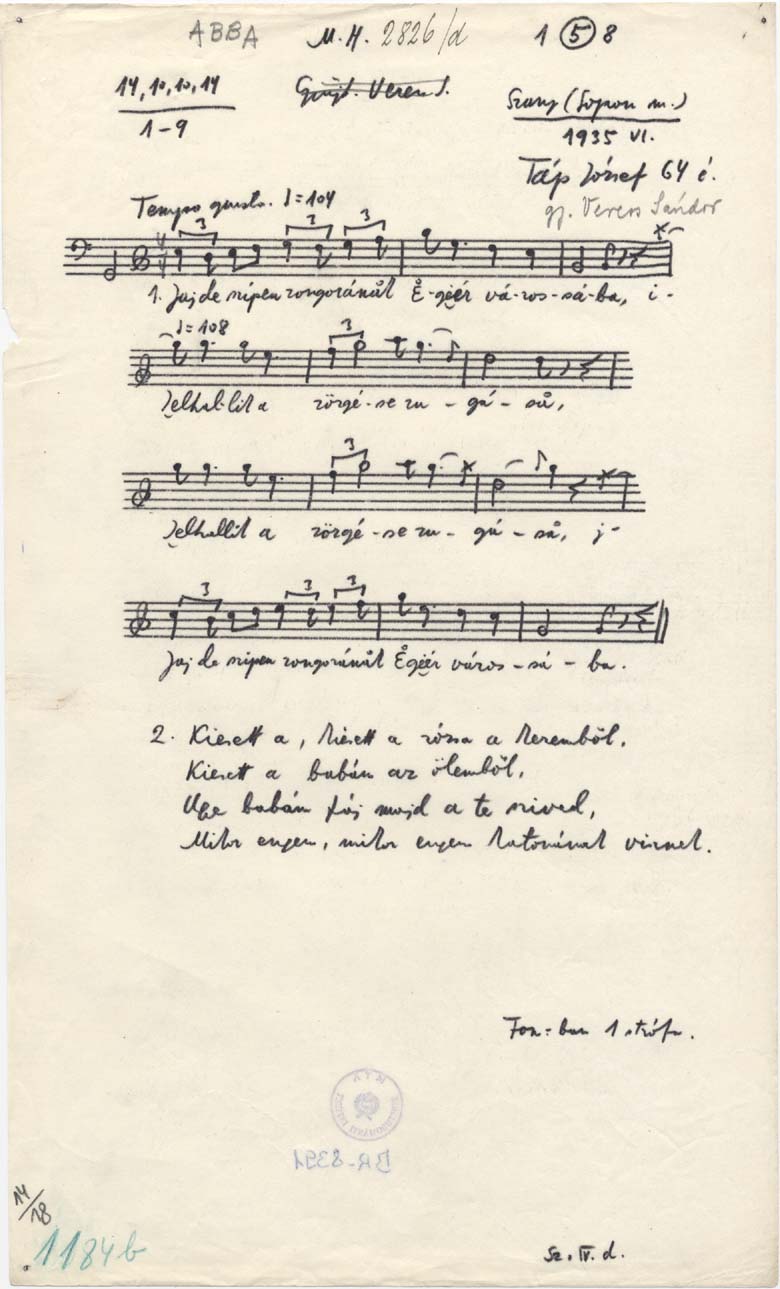 ABBA M.H. 2826/d 1 5 8
14, 10, 10, 14
1-9
Gyűjt. Veress S.
Szany (Sopron m.)
1935 VI.
Táp József 64 é.
gy. Veress Sándor
Tempo giusto. ♩=104
3 3 3
1. Jaj de szípen zongoránål Ȧ-gëér vá-ros-sá-ba, i-
♩=108
3
zelhal-lit a zörgé-se zu-gá-så,
3
zelhallit a zörgé-se zu-gá-så, j-
3 3 3
Jaj de szípen zongoránål Ȧgëér város-sá-ba.
2. Kiesett a, kiesett a rózsa a keremből,
Kiesett a babám az ölemből,
Uge babám fáj majd a te szived,
Mikor engem, mikor engem katonának visznek.
Fon=ban 1 strófa.
BR-8391
14/18
1184b
Sz. IV. d.